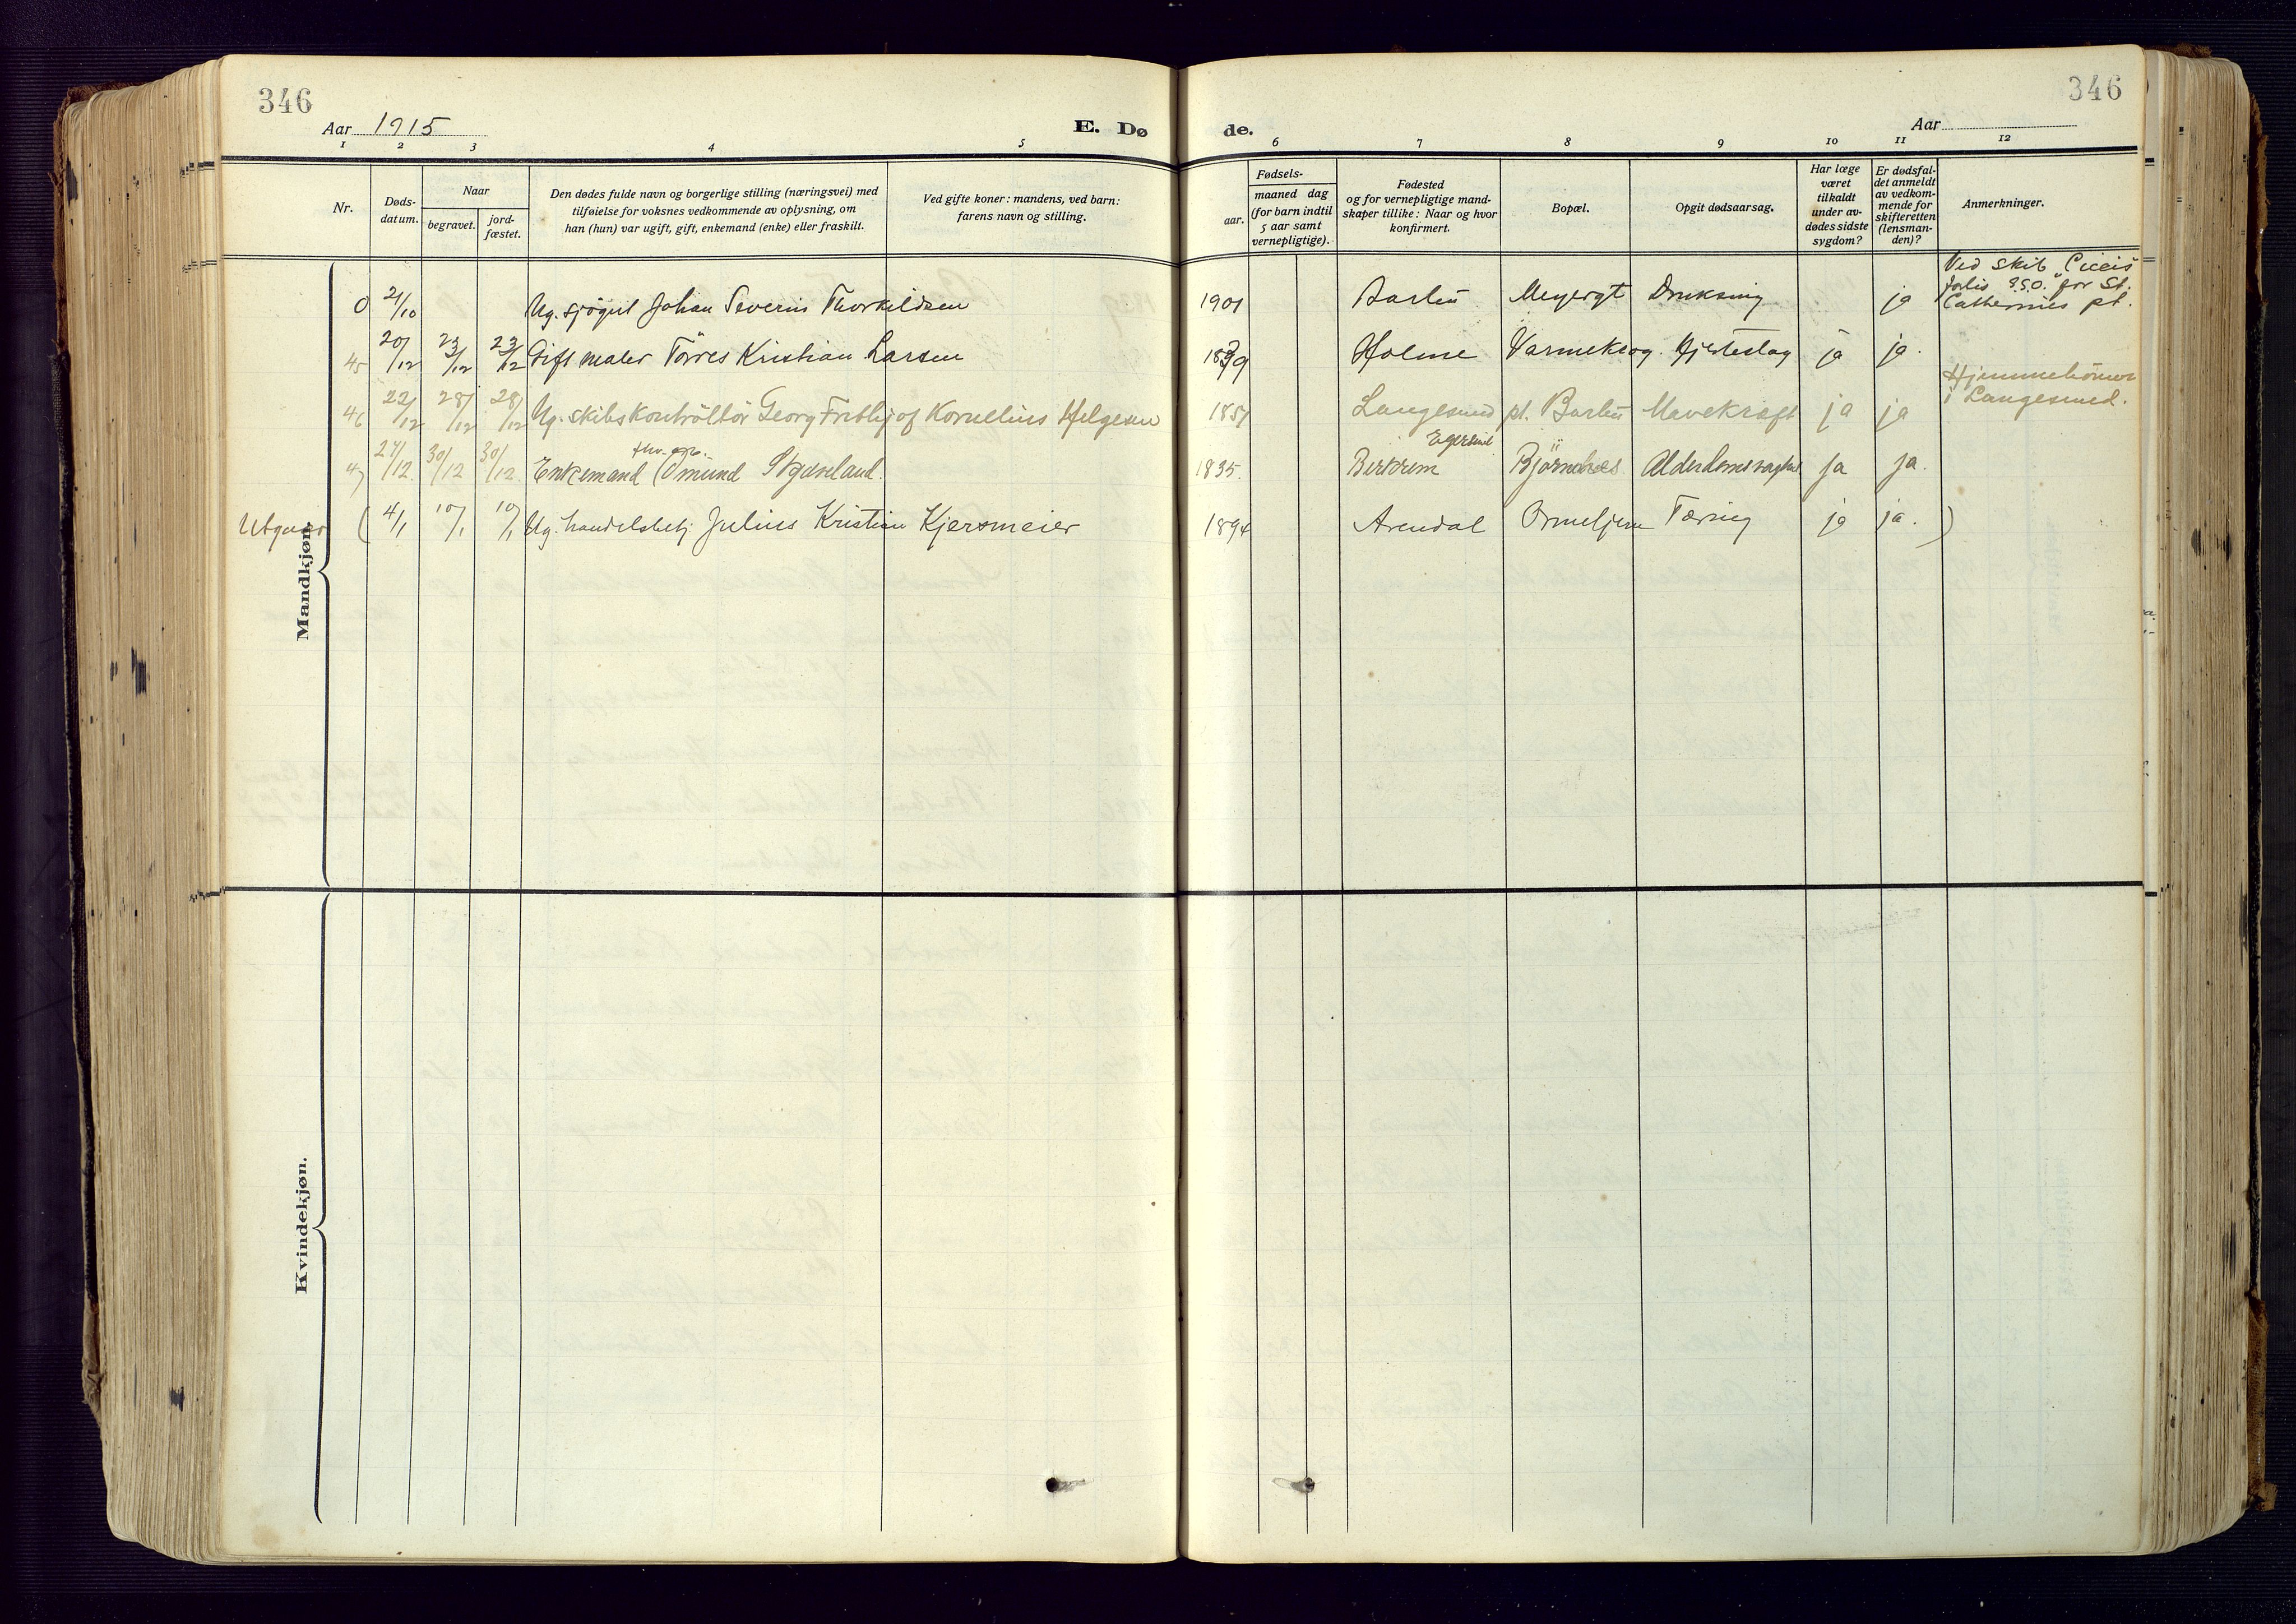 346
346
Aar 1915
E. Dø
de.
Aar
1 2 3 4 5 6 7 8 9 10 11 12
Nr.
Døds-
datum.
Naar
begravet.
jord-
fæstet.
Den dødes fulde navn og borgerlige stilling (næringsvei) med
tilføielse for voksnes vedkommende av oplysning, om
han (hun) var ugift, gift, enkemand (enke) eller fraskilt.
Ved gifte koner: mandens, ved barn:
farens navn og stilling.
Fødsels-
aar.
maaned dag
(for barn indtil
5 aar samt
vernepligtige).
Fødested
og for vernepligtige mand-
skaper tillike: Naar og hvor
konfirmert.
Bopæl.
Opgit dødsaarsag.
Har læge
været
tilkaldt
under av-
dødes sidste
sygdom?
Er dødsfal-
det anmeldt
av vedkom-
mende for
skifteretten
(lensman-
den)?
Anmerkninger.
Mandkjøn.
0 21/10 Ug. sjögut Johan Severin Thorkildsen 1901 Barbu Druksning ja
Ved skib
forlis S.S.O. for St.
Catherines pt.
45 20/12 23/12 23/12 Gift maler Törres Kristian Larsen 1839 Holme Varmekrog. Hjerteslag ja ja.
46 22/12 28/12 28/12 Ug. skibskontrollör Georg Frithjof Kornelius Helgesen 1857 Langesund pt. Barbu Mavekræft ja ja
Hjemmehörende
i Langesund.
47 27/12 30/12 30/12 Enkemand Omund Skjæveland 1835. Birkrem Egersund Alderdomssvaghed ja ja.
Utgaar ( 4/1 10/1 10/1 Ug. handelsbetj Julius Kristian Kjersmeier 1894 Arendal Tæring ja ja. )
Kvindekjøn.